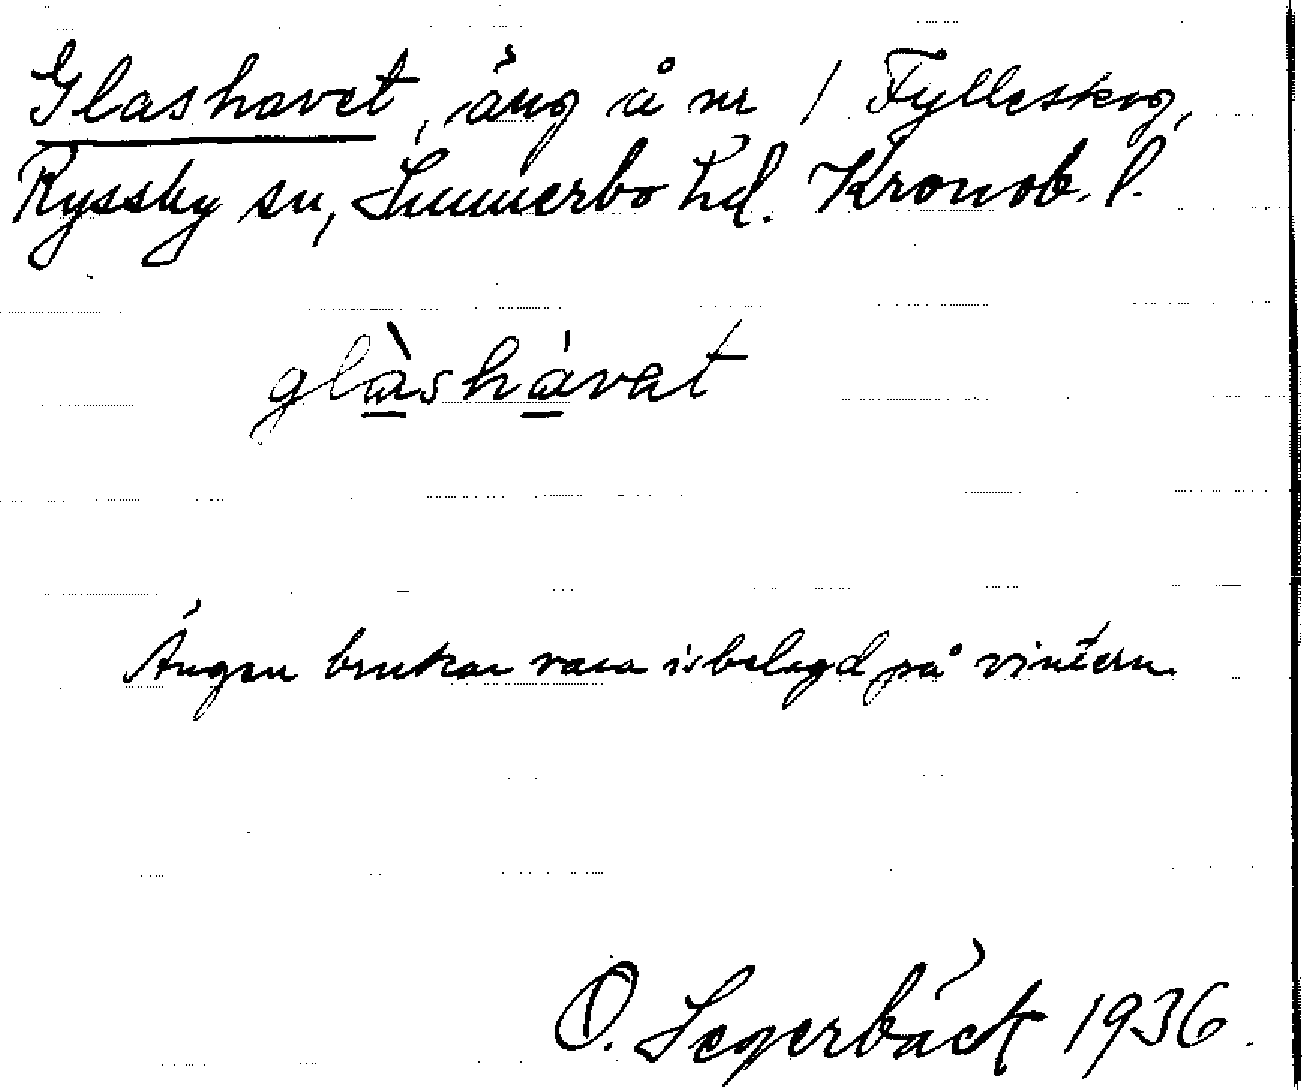 Glashavet, äng å nr 1 Fylleskog,
Ryssby sn, Sunnerbo hd. Kronob. l.
glàshávat
Ängen brukar vara isbelagd på vintern
O. Segerbäck 1936.